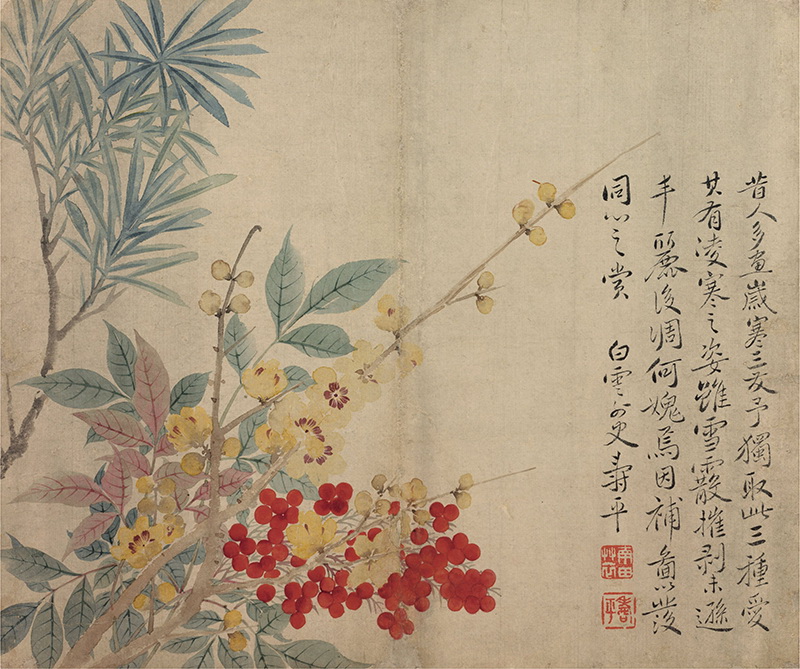 昔人多畫歲寒三友予獨取此三種愛
其有凌寒之姿雖雪霰摧剥未遜
丰麗後凋何愧焉因補啚以發
同心之賞 白雲外史壽平
南田艸衣
壽平